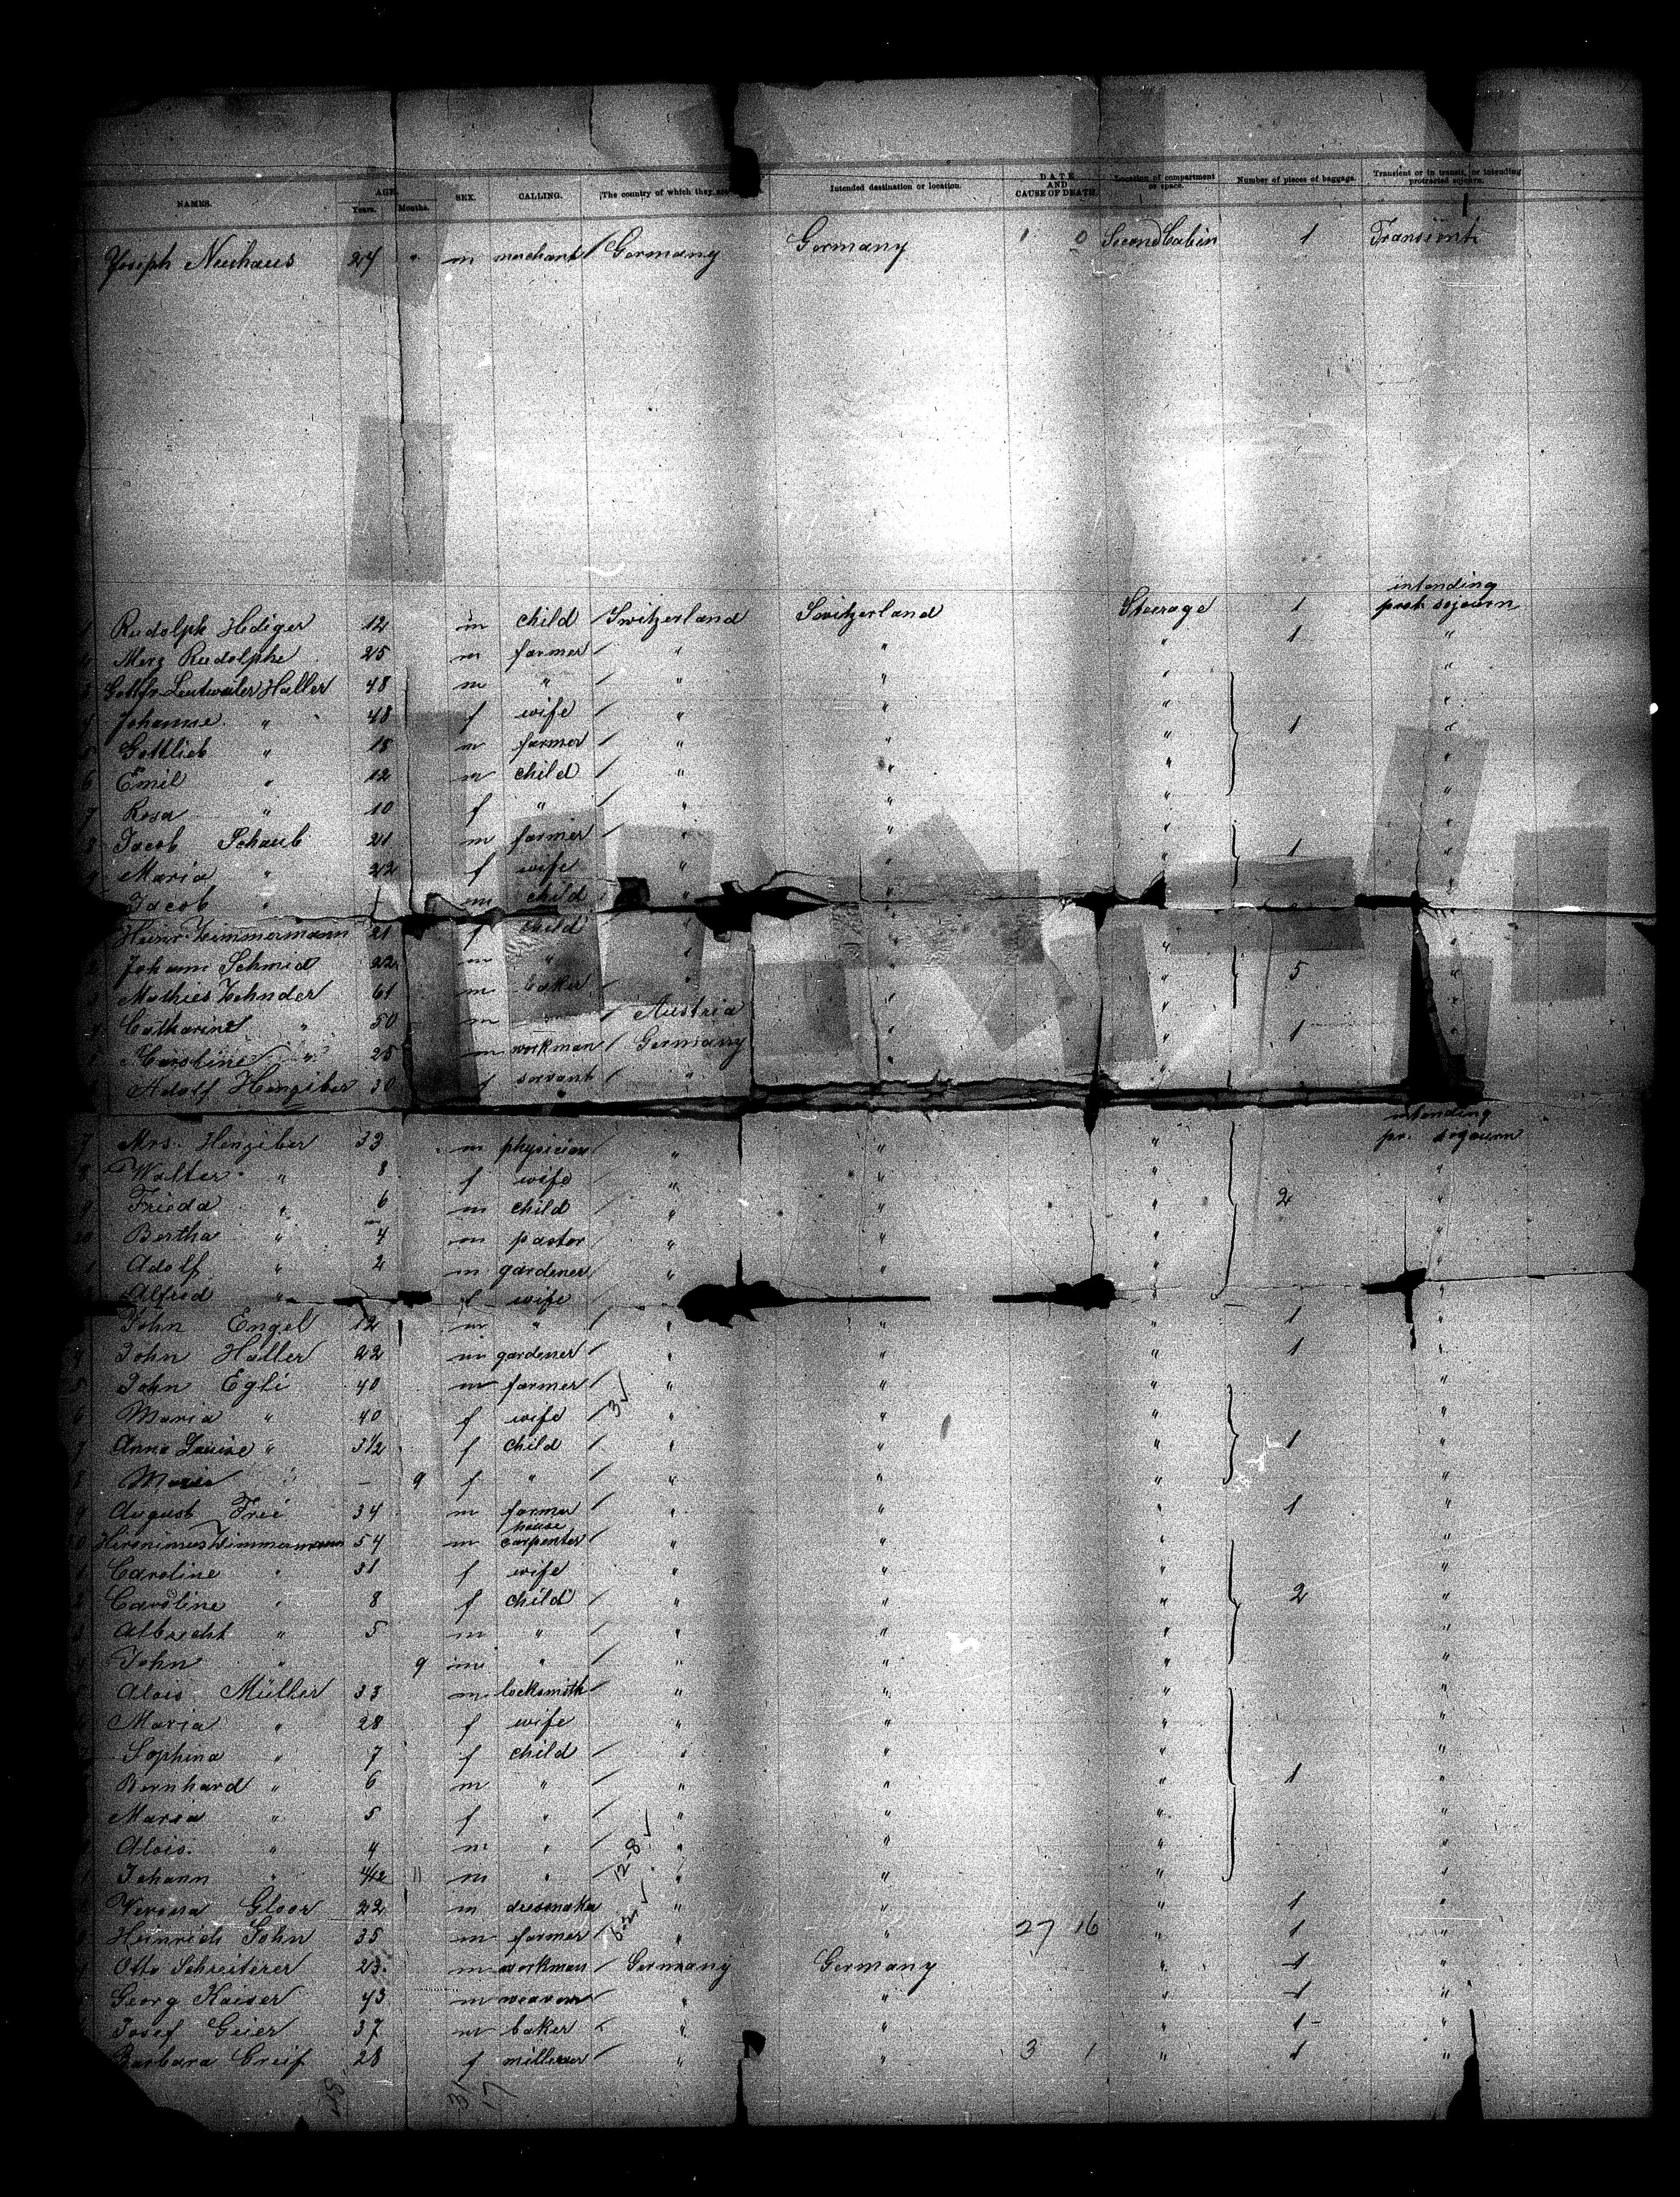 NAMES. AGE. Years. Months. SEX. CALLING. The country of which they are Intended destination or location. DATE AND CAUSE OF DEATH. Location of compartment or space. Number of pieces of baggage. Transient or in transit, or intending protracted sojourn.
Joseph Neuhaus 27 " m merchant / Germany Germany 1 0 Second Cabin 1 Transient
1 Rudolph Hediger 12 m child / Switzerland Switzerland Steerage 1 intending prot. sojourn
2 Merz Rudolphe 25 m farmer / " " " 1 "
3 Gottfr. Leutwiler Haller 48 m " / " " " "
4 Johanne " 48 f wife / " " " 1 "
5 Gottlieb " 18 m farmer / " " " "
6 Emil " 12 m child / " " " "
7 Rosa " 10 f " / " " " "
8 Jacob Schaub 21 m farmer / " " " 1 "
9 Maria " 22 f wife " " " "
Jacob " m child " " "
Heinr. Zimmermann 21 f child " " " "
2 Johann Schmid 22 m " " " " 5 "
3 Mathies Zehnder 61 m baker " " " "
4 Catharine " 50 m / Austria " " 1 "
5 Caroline " 25 m workman / Germany " " "
Adolf Henziker 30 f servant " "
7 Mrs. Henziker 33 m physician / " " " intending pr. sojourn
8 Walter " 8 f wife " " " "
9 Frieda " 6 m child / " " " 2 "
20 Bertha " 4 m pastor / " " " "
1 Adolf " 2 m gardener / " " " "
Alfred " f wife / "
John Engel 12 m " / " " " 1 "
4 John Haller 22 m gardener / " " " 1 "
5 John Egli 40 m farmer / " " " "
6 Maria " 40 f wife 3 √ " " " "
7 Anna Louise " 3 1/2 f child / " " " 1 "
8 Marie " - 9 f " / " " " "
9 August Frei 34 m farmer / " " " 1 "
0 Hironimus Zimmermann 54 m house carpenter / " " " "
1 Caroline " 31 f wife / " " " "
2 Caroline " 8 f child / " " " 2 "
3 Albrecht " 5 m " / " " " "
4 John " 9 m " / " " " "
5 Alois Müller 33 m locksmith " " " "
Maria " 28 f wife " " " "
Sophina " 7 f child / " " " "
Bernhard " 6 m " / " " " 1 "
Maria " 5 f " / " " " "
Alois " 4 m " / 12-8 √ " " " "
1 Johann " 4/12 11 m " / " " " "
Verena Gloor 22 m dressmaker " " " 1 "
Heinrich John 35 m farmer / √ " " 27 16 " 1 "
Otto Schreiterer 23 m workman / Germany Germany " 1 "
Georg Kaiser 43 m weaver / " " " 1 "
Josef Geier 37 m baker / " " " 1 "
Barbara Greif 28 f milliner / " " 3 1 " 1 "
31 17